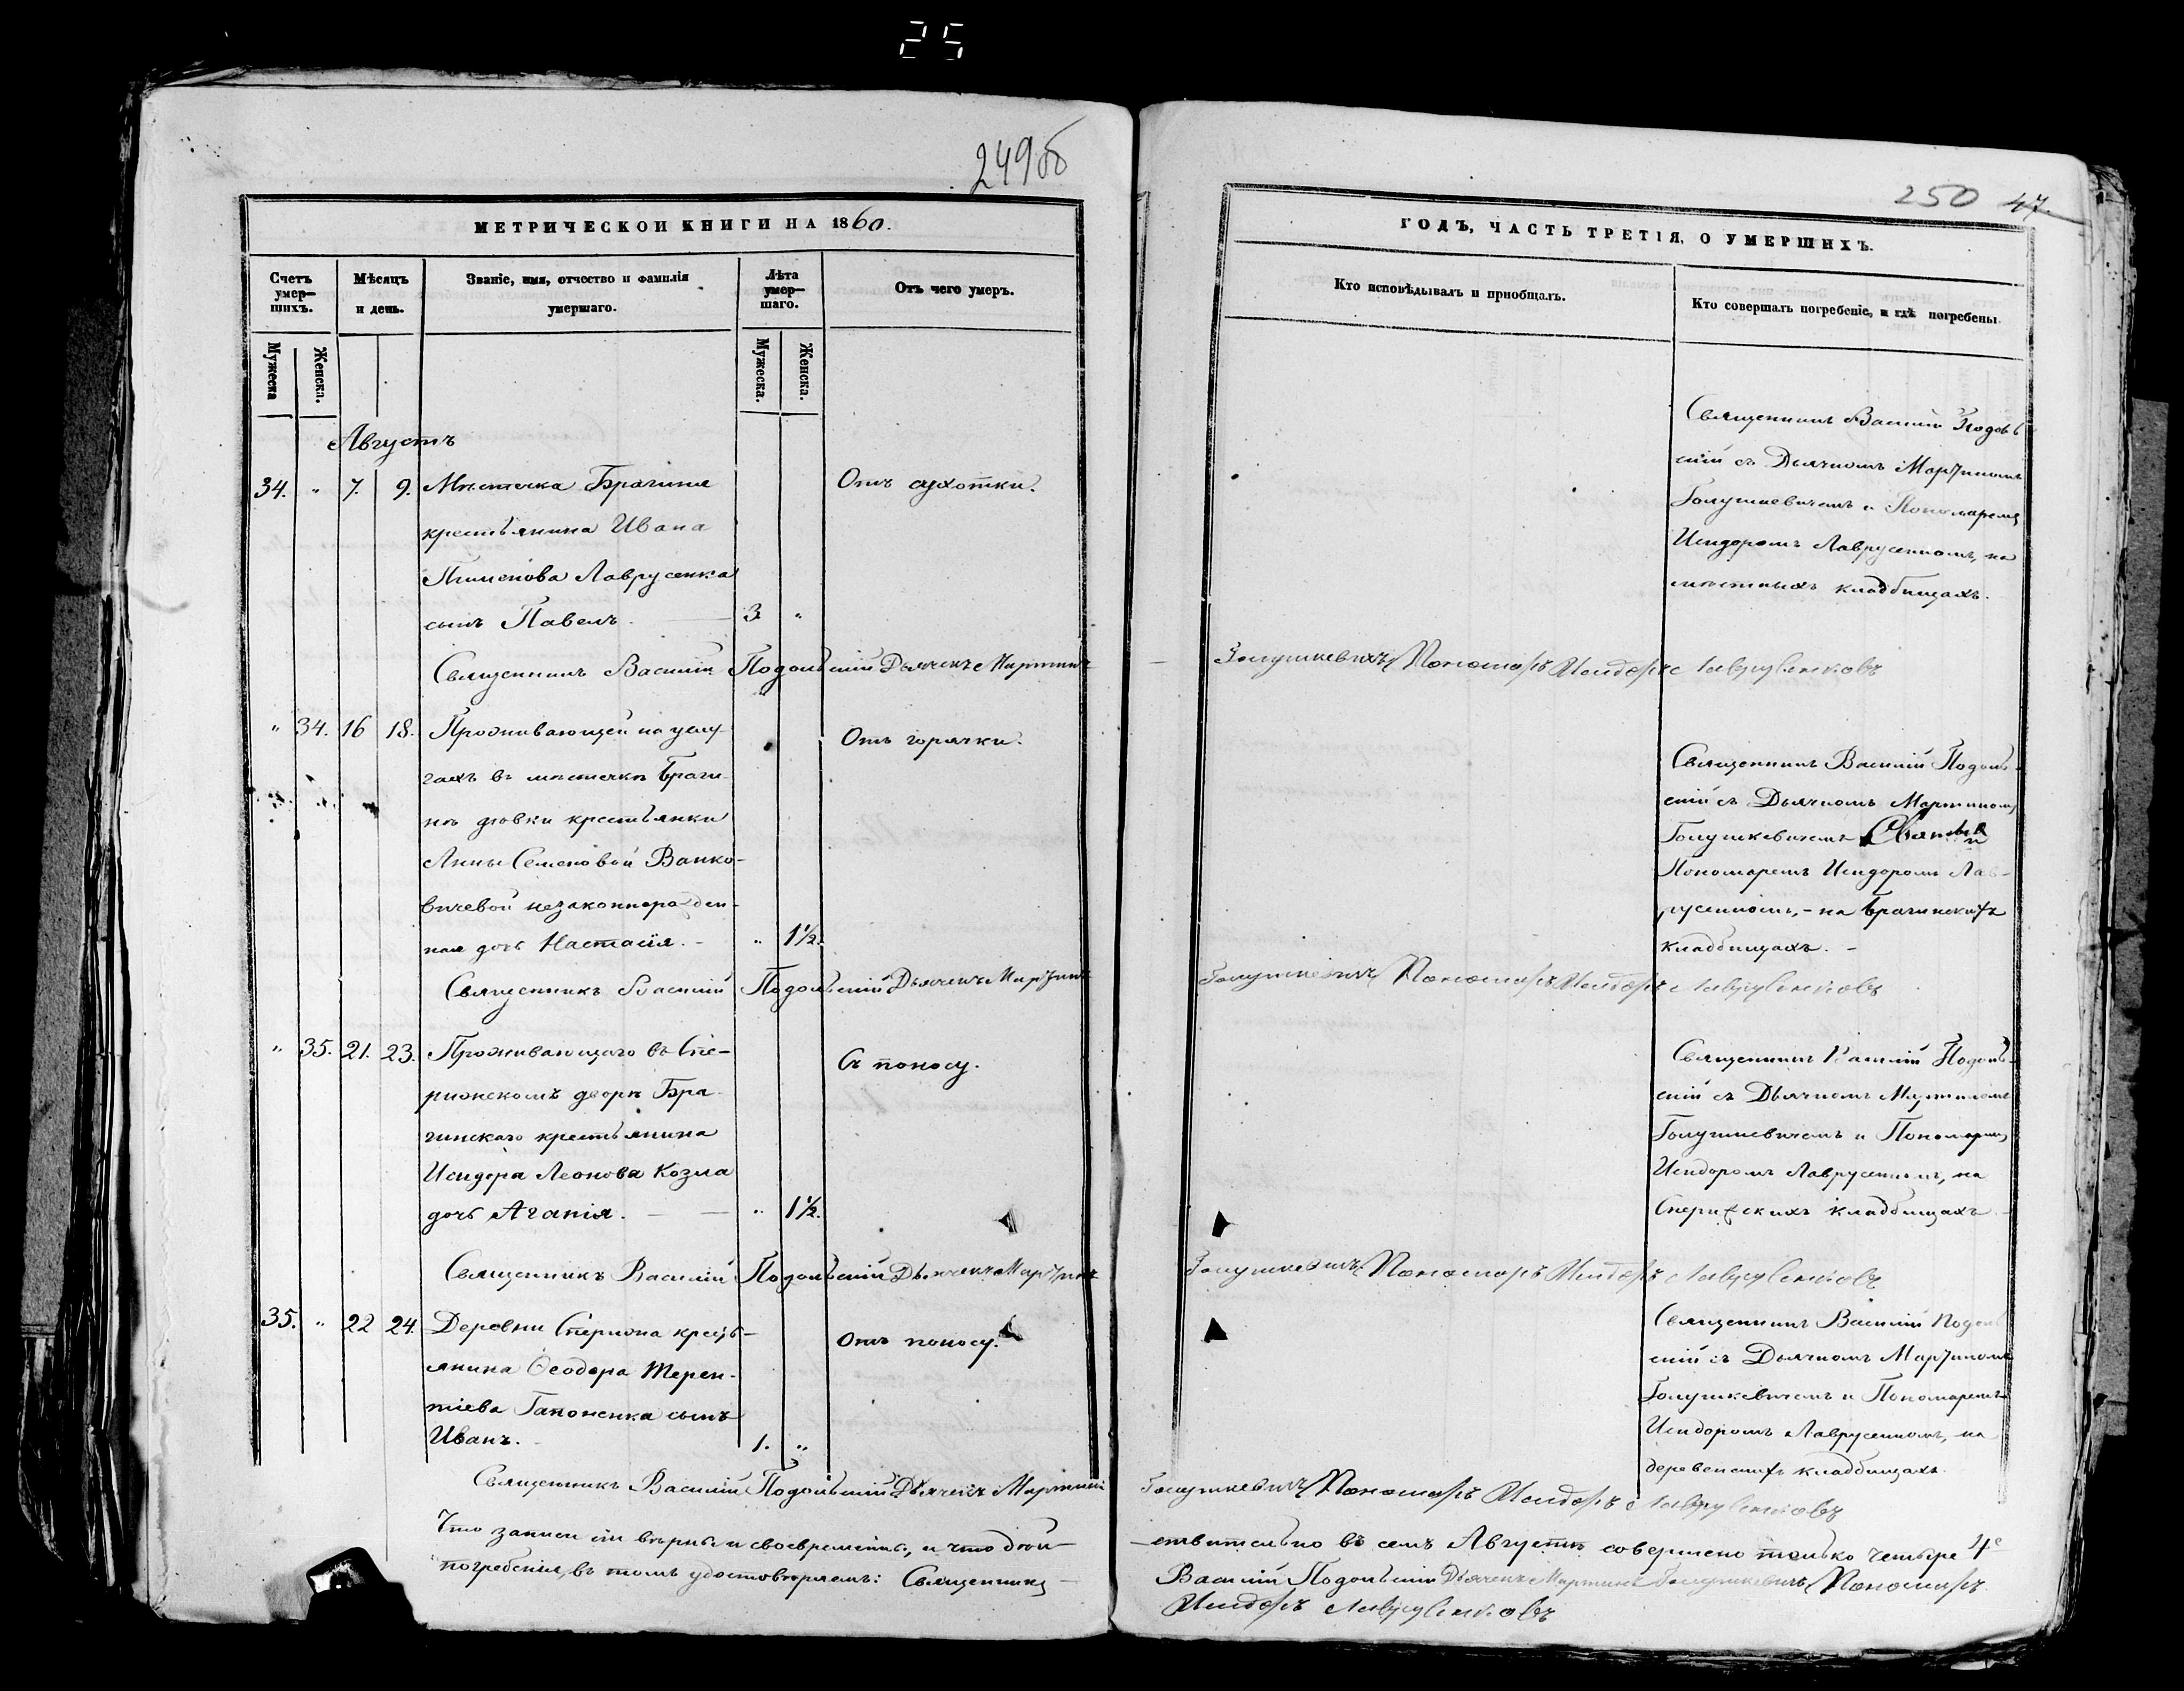 25
249об
МЕТРИЧЕСКОЙ КНИГИ НА 1860.
Счетъ умер-шихъ.
Мѣсяцъ и день.
Званіе, имя, отчество и фамилія умершаго.
Лѣта умер-шаго.
Отъ чего умеръ.
Мужеска
Женска.
Мужеска.
Женска.
Августъ
34. " 7. 9. Мѣстечка Брагина Отъ сухотки.
крестьянина Ивана
Пименова Лаврусенка
сынъ Павелъ. 3. "
Священникъ Василій Подольскій Дьячекъ Мартинъ
" 34. 16 18. Проживающей на услу- Отъ горячки.
гахъ въ мѣстечкѣ Браги-
нѣ дѣвки крестьянки
Анны Семеновой Ванко-
вичевой незаконнорожден-
ная дочь Настасія. - " 1½.
Священникъ Василій Подольскій Дьячекъ Мартинъ
" 35. 21. 23. Проживающаго въ Спе- Съ поносу.
рижскомъ дворѣ Бра-
гинскаго крестьянина
Исидора Леонова Козла
дочь Агапія. " 1½.
Священникъ Василій Подольскій Дьячекъ Мартинъ
35. " 22 24. Деревни Сперижа кресть- Отъ поносу.
янина Ѳеодора Терен-
тіева Гапоненка сынъ
Иванъ. 1. "
Священникъ Василій Подольскій Дьячекъ Мартинъ
Что записи сіи вѣрны и своевременны, и что дѣй-
погребенія, въ томъ удостовѣряемъ: Священникъ
250 47.
ГОДЪ, ЧАСТЬ ТРЕТІЯ, О УМЕРШИХЪ.
Кто исповѣдывалъ и пріобщалъ.
Кто совершалъ погребеніе, и гдѣ погребены.
Священникъ Василій Подоль-
скій съ Дьячкомъ Мартиномъ
Голушкевичемъ и Пономаремъ
Исидоромъ Лаврусенкомъ, на
мѣстныхъ кладбищахъ.
Голушкевичъ Пономарь Исидоръ Лаврусенковъ
Священникъ Василій Подоль-
скій съ Дьячкомъ Мартиномъ
Голушкевичемъ и
Пономаремъ Исидоромъ Лав-
русенкомъ, - на Брагинскихъ
кладбищахъ. -
Голушкевичъ Пономарь Исидоръ Лаврусенковъ
Священникъ Василій Подоль-
скій съ Дьячкомъ Мартиномъ
Голушкевичемъ и Пономаремъ
Исидоромъ Лаврусенкомъ, на
Сперижскихъ кладбищахъ
Голушкевичъ Пономарь Исидоръ Лаврусенковъ
Священникъ Василій Подоль
скій съ Дьячкомъ Мартиномъ
Голушкевичемъ и Пономаремъ
Исидоромъ Лаврусенкомъ, на
деревенскихъ кладбищахъ.
Голушкевичъ Пономарь Исидоръ Лаврусенковъ
-ствительно въ семъ Августѣ совершено только четыре 4е
Василій Подольскій Дьячекъ Мартинъ Голушкевичъ Пономарь
Исидоръ Лаврусенковъ